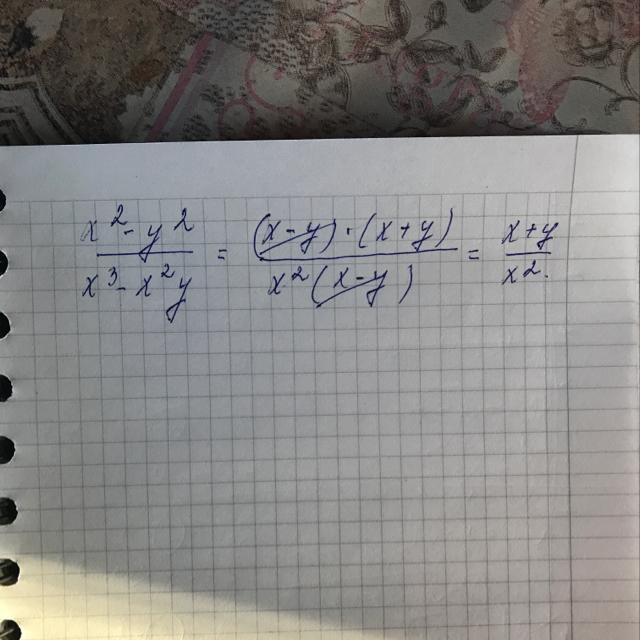 x² - y² / x³ - x²y = (x - y) · (x + y) / x² (x - y) = x + y / x².